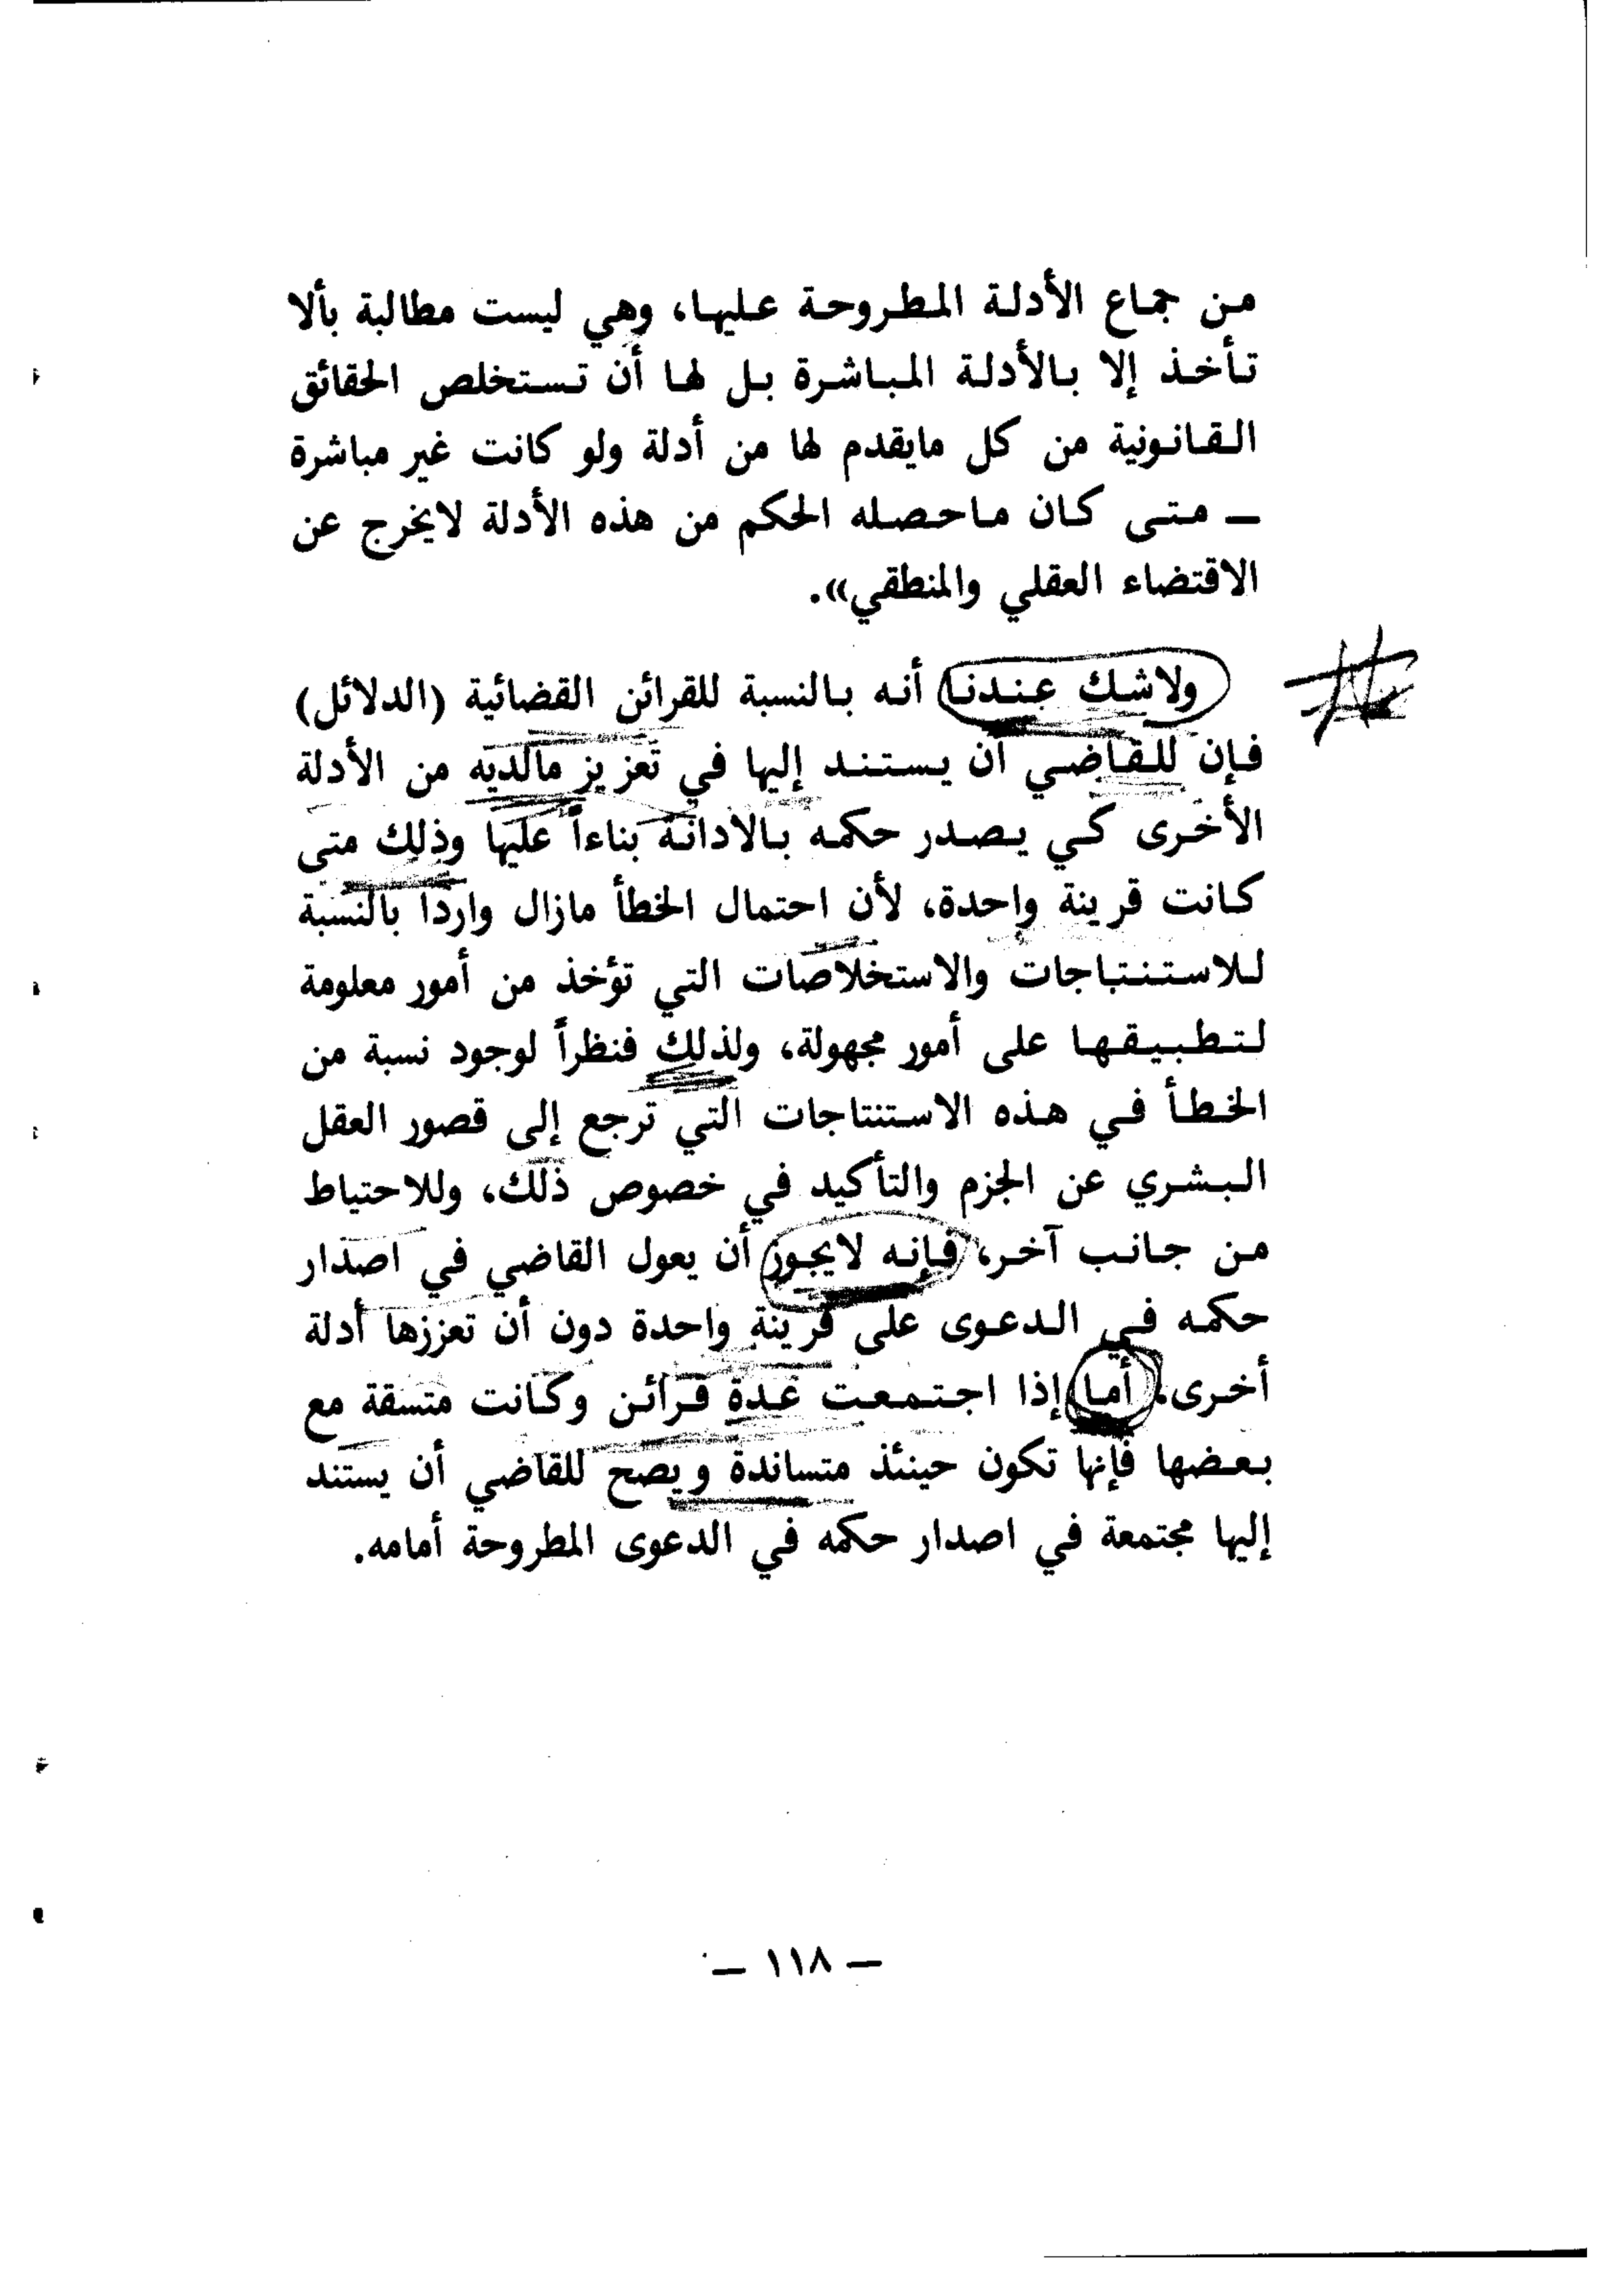 من جماع الأدلة المطروحة عليها، وهي ليست مطالبة بألا
تأخذ إلا بالأدلة المباشرة بل لها أن تستخلص الحقائق
القانونية من كل مايقدم لها من أدلة ولو كانت غير مباشرة
ــ متى كان ماحصله الحكم من هذه الأدلة لايخرج عن
الاقتضاء العقلي والمنطقي».
ولاشك عندنا أنه بالنسبة للقرائن القضائية (الدلائل)
فإن للقاضي أن يستند إليها في تعزيز مالديه من الأدلة
الأخرى كي يصدر حكمه بالادانة بناءاً عليها وذلك متى
كانت قرينة واحدة، لأن احتمال الخطأ مازال وارداً بالنسبة
للاستنتاجات والاستخلاصات التي تؤخذ من أمور معلومة
لتطبيقها على أمور مجهولة، ولذلك فنظراً لوجود نسبة من
الخطأ في هذه الاستنتاجات التي ترجع إلى قصور العقل
البشري عن الجزم والتأكيد في خصوص ذلك، وللاحتياط
من جانب آخر، فإنه لايجوز أن يعول القاضي في اصدار
حكمه في الدعوى على قرينة واحدة دون أن تعززها أدلة
أخرى. أما إذا اجتمعت عدة قرائن وكانت متسقة مع
بعضها فإنها تكون حينئذ متساندة ويصح للقاضي أن يستند
إليها مجتمعة في اصدار حكمه في الدعوى المطروحة أمامه.
ــ ١١٨ ــ